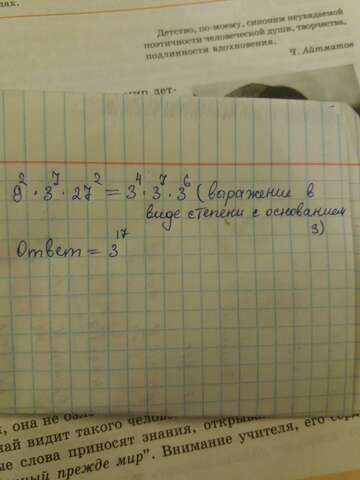 дах.
Детство, по-моему, синоним неувядаемой
поэтичности человеческой души, творчества,
подлинности вдохновения.
Ч. Айтматов
9² · 3⁷ · 27² = 3⁴ · 3⁷ · 3⁶ (выражение в
виде степени с основанием
3)
Ответ = 3¹⁷
она не
най видит такого
ые слова приносят знания,
прежде мир". Внимание учителя, его